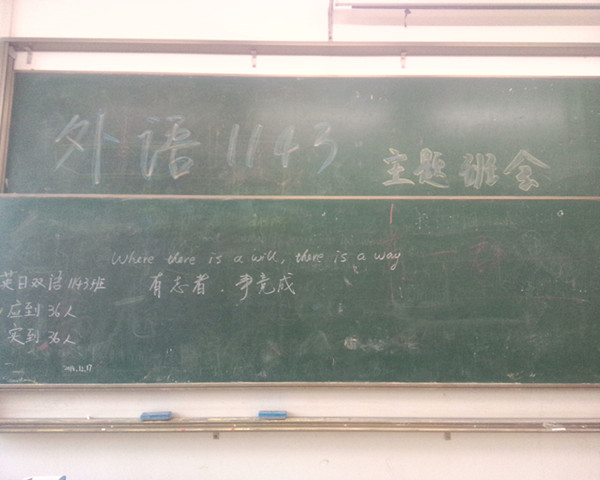 外语1143 主题班会
Where there is a will, there is a way
有志者,事竟成
英日双语1143班
应到36人
实到36人